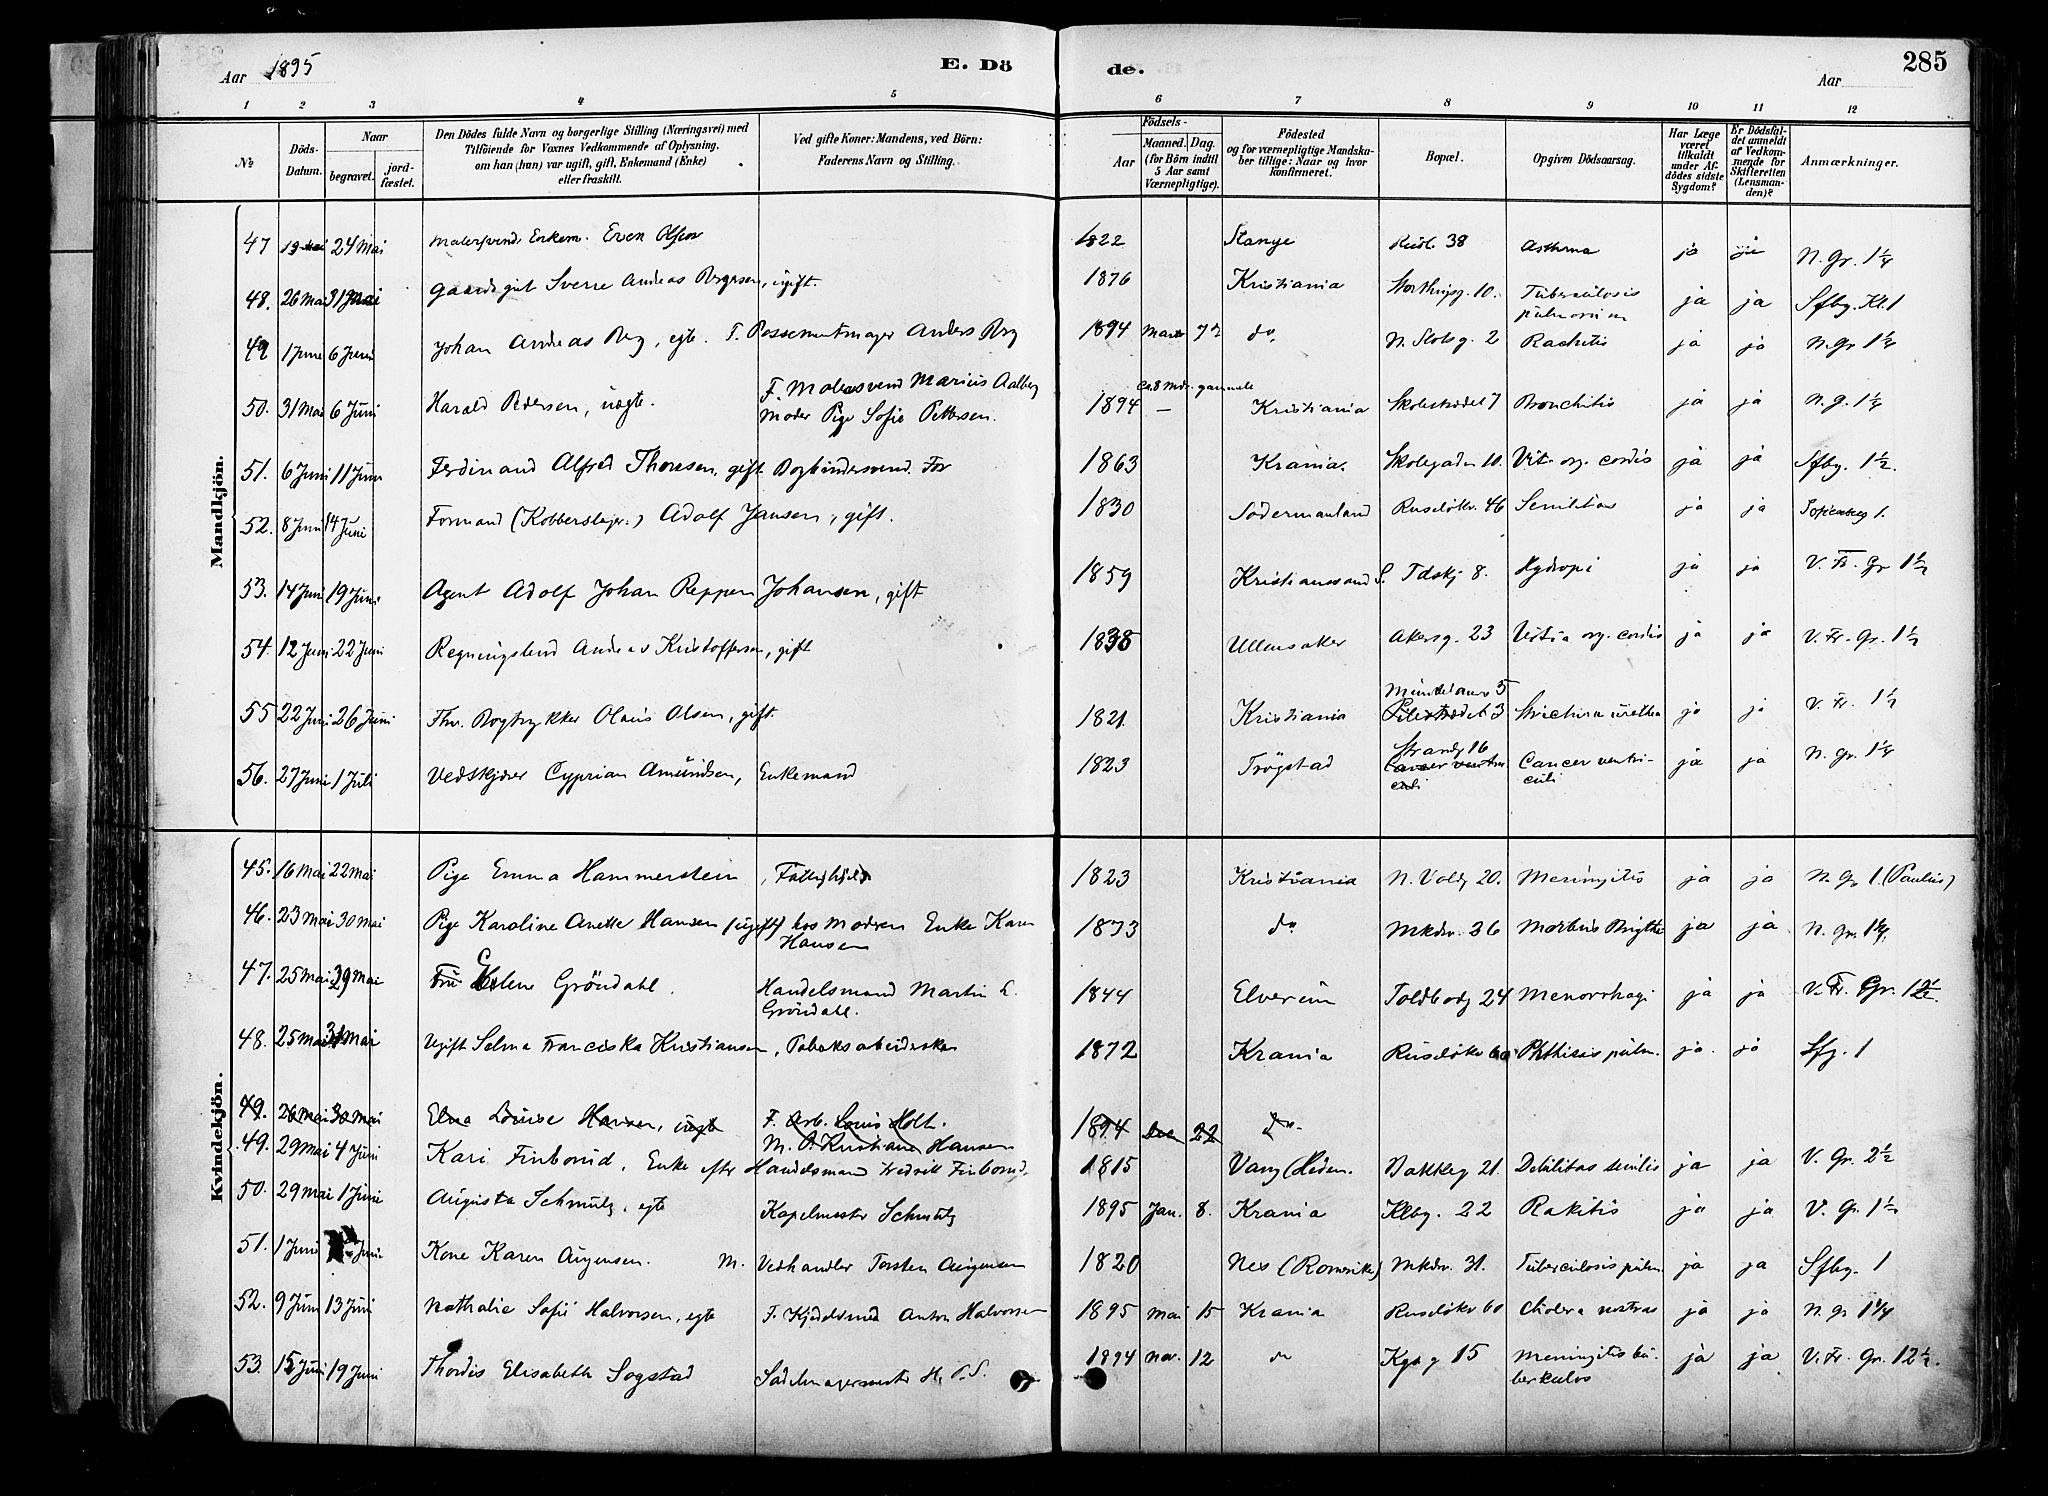 Aar 1895 E. Dö de. Aar 285
1 2 3 4 5 6 7 8 9 10 11 12
No
Döds-Datum.
Naar
begravet.
jord-fæstet.
Den Dödes fulde Navn og borgerlige Stilling (Næringsvei) med
Tilföiende for Voxnes Vedkommende af Oplysning,
om han (hun) var ugift, gift, Enkemand (Enke)
eller fraskilt.
Ved gifte Koner: Mandens, ved Börn:
Faderens Navn og Stilling.
Födsels-
Aar
Maaned. Dag.
(for Börn indtil
5 Aar samt
Værnepligtige).
Födested
og for værnepligtige Mandska-
ber tillige: Naar og hvor
konfirmeret.
Bopæl.
Opgiven Dödsaarsag.
Har Læge
været
tilkaldt
under Af-
dödes sidste
Sygdom?
Er Dödsfal-
det anmeldt
af Vedkom-
mende for
Skifteretten
(Lensman-
den)?
Anmærkninger.
Mandkjön.
47 19 Mai 24 Mai Malersvend Enkem. Even Olsen 1822 Stange Rusl. 38 Asthma ja ja N. Gr. 1 1/4
48. 26 Mai 31 Mai Gaardsgut Sverre Andreas Bergesen, ugift. 1876 Kristiania Storthingsg. 10. Tuberculosis pulmonum ja ja Sfbg. Kl. 1
49 1 Juni 6 Juni Johan Andreas Berg, egte. F. Possementmager Anders Berg 1894 Marts 7 do. N. Slotsg. 2 Rachitis ja ja N. Gr 1 1/4
50. 31 Mai 6 Juni Harald Pedersen, uægte. F. Malersvend Marius Aalberg
Moder Pige Sofie Pettersen. 1894 ca. 8 Mdr. gammel — Kristiania Skolestrædet 7 Bronchitis ja ja N. g. 1 1/4
51. 6 Juni 11 Juni Ferdinand Alfred Thoresen, gift Bogbindersvend. For 1863 Krania. Skolegaden 10. Vit. org. cordis ja ja Sfbg. 1 1/2.
52. 8 Juni 14 Juni Formand (Kobberslager.) Adolf Jansen, gift. 1830 Södermanland Ruselökv. 46 Senilitas ja ja Sofienberg 1.
53. 14 Juni 19 Juni Agent Adolf Johan Reppen Johansen, gift 1859 Kristianssand S. Toldbg 8. Hydropi ja ja V. Fr. Gr 1 1/2
54. 12 Juni 22 Juni Regningsbud Andreas Kristoffersen, gift 1838 Ullensaker Akersg. 23 Vitia org. cordis ja ja V. Fr. Gr. 1 1/2
55 22 Juni 26 Juni Fhv. Bogtrykker Olaus Olsen, gift. 1821. Kristiania Munkedamsv 5
Pilestrædet 3 Strictura urethra ja ja V. Fr. 1 1/2
56. 27 Juni 1 Juli Vedskjærer Cyprian Amundsen, Enkemand 1823 Trögstad Strandg 16
Cancer ventri
culi Cancer ventri-
culi ja ja N. gr. 1 1/4
Kvindekjön.
45. 16 Mai 22 Mai Pige Emma Hammerstein, Fattighjelp 1823 Kristiania N. Voldg 20. Meningitis ja ja N. Gr 1. (Paulus)
46. 23 Mai 30 Mai Pige Karoline Anette Hansen (ugift) hos Modren Enke Karen
Hansen 1873 do Mkdv. 36 Morbus Brigthi ja ja. N. Gr. 1 1/4.
47. 25 Mai 29 Mai Fru Elene Gröndahl. Handelsmand Martin E.
Gröndahl. 1844 Elverum Toldbodg 24 Menorrhagi ja ja V. Fr. Gr. 1 1/2.
48. 25 Mai 31 Mai Ugift Selma Franciska Kristiansen, Tobaksarbeiderske 1872 Krania Ruselökv 60 Phthisis pulm. ja. ja Sfg. 1
49. 26 Mai 30 Mai Elna Louise Hansen, uegte F. Arb. Louis Holt.
M. P. Kristiane Hansen 1894 Dec 22 do.
49. 29 Mai 4 Juni Kari Finborud, Enke efter Handelsmand Fredrik Finborud. 1815 Vang (Hedem. Bakkeg 21. Debilitas senilis ja ja V. Gr. 2 1/2
50. 29 Mai 1 Juni Augusta Schmutz, egte Kapelmester Schmutz 1895 Jan. 8. Krania Klbg. 22 Rakitis ja ja V. Gr. 1 1/2
51. 1 Juni Juni Kone Karen Augensen. M. Vedhandler Torsten Augensen 1820 Nes (Romerike) Mkdv. 31. Tuberculosis pulm. ja ja Sfbg. 1
52. 9 Juni 13 Juni Nathalie Sofie Halvorsen, egte F. Kjedelsmed Anton Halvorsen 1895 Mai 15 Krania Ruselökv 60 Cholera nostras ja ja N. gr 1 1/4
53. 15 Juni 19 Juni Thordis Elisabeth Sogstad Sadelmagermester H. P. S. 1894 Nov. 12 do Kgsg 15 Meningitis tu-
berkulos ja ja V. Fr. Gr. 12 1/2.